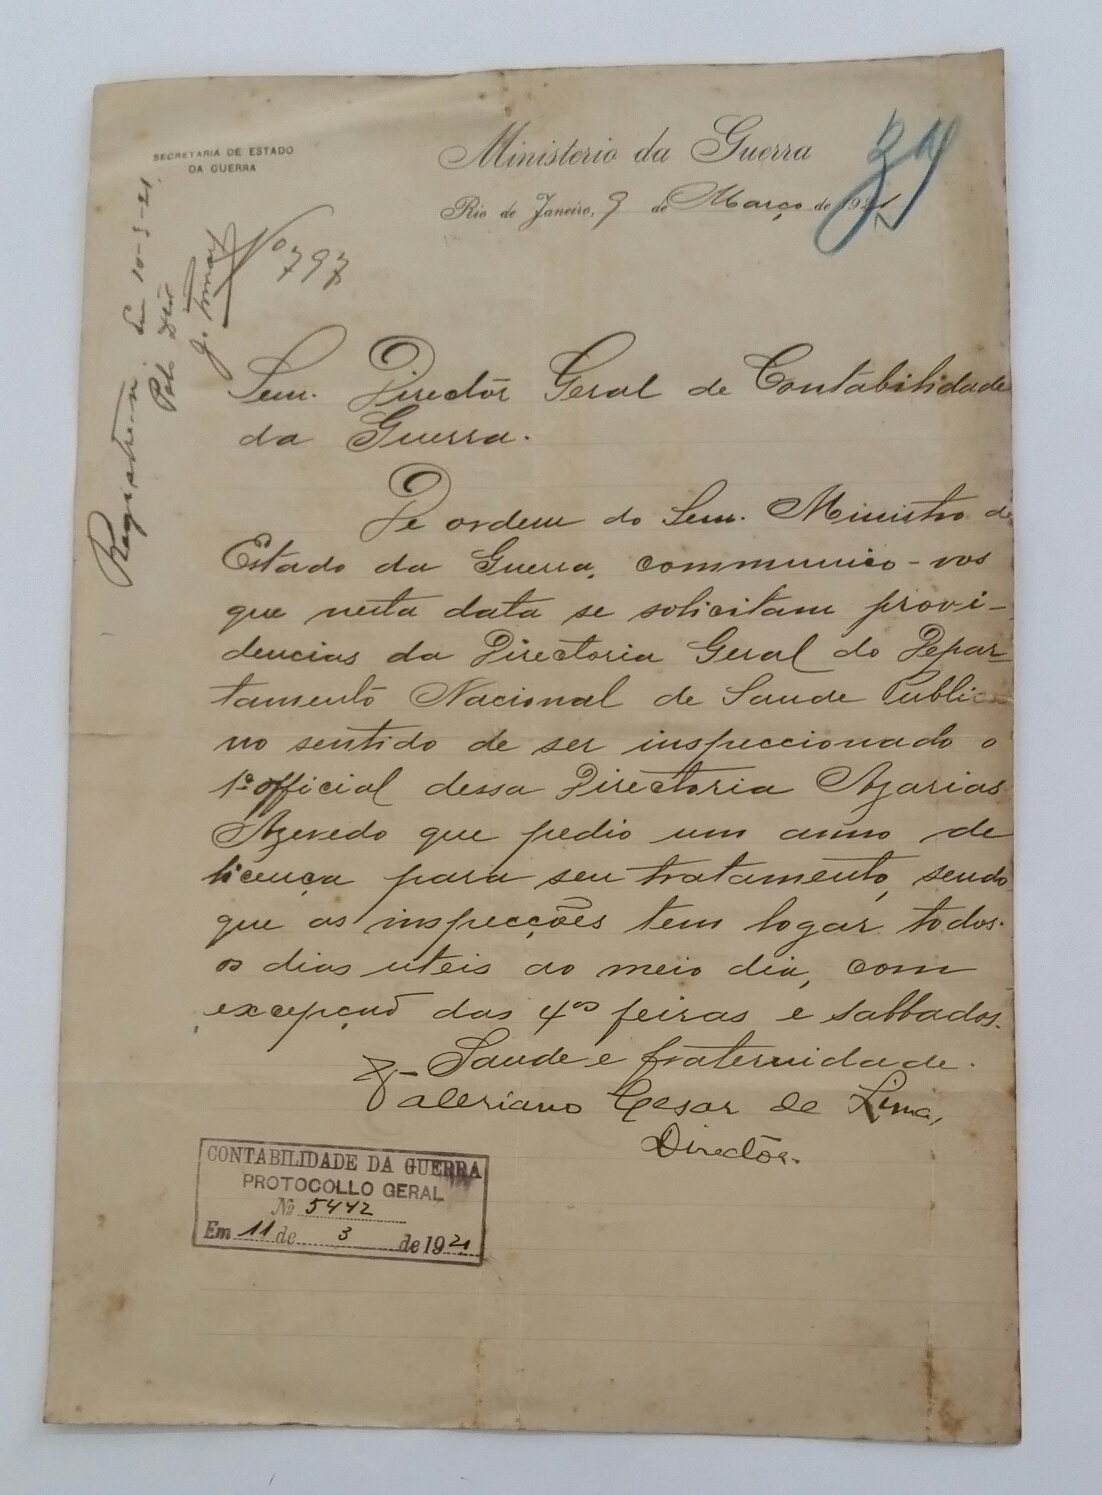 SECRETARIA DE ESTADO
DA GUERRA
Ministerio da Guerra
Rio de Janeiro, 9 de Março de 1921
Nº 797
Em 10-3-21.
Snr. Directôr Geral de Contabilidade
da Guerra.
De ordem do Snr. Ministro de
Estado da Guerra, communico-vos
que nesta data se solicitam provi-
dencias da Directoria Geral do Depar-
tamento Nacional de Saude Publica
no sentido de ser inspeccionado o
1º official dessa Directoria Azarias
Azevedo que pedio um anno de
licença para seu tratamento, sendo
que as inspecções tem logar todos
os dias uteis ao meio dia, com
excepçaõ das 4as feiras e sabbados.
Saude e fraternidade.
Valeriano Cesar de Lima,
Directôr.
CONTABILIDADE DA GUERRA
PROTOCOLLO GERAL
Nº 5442
Em 11 de 3 de 1921